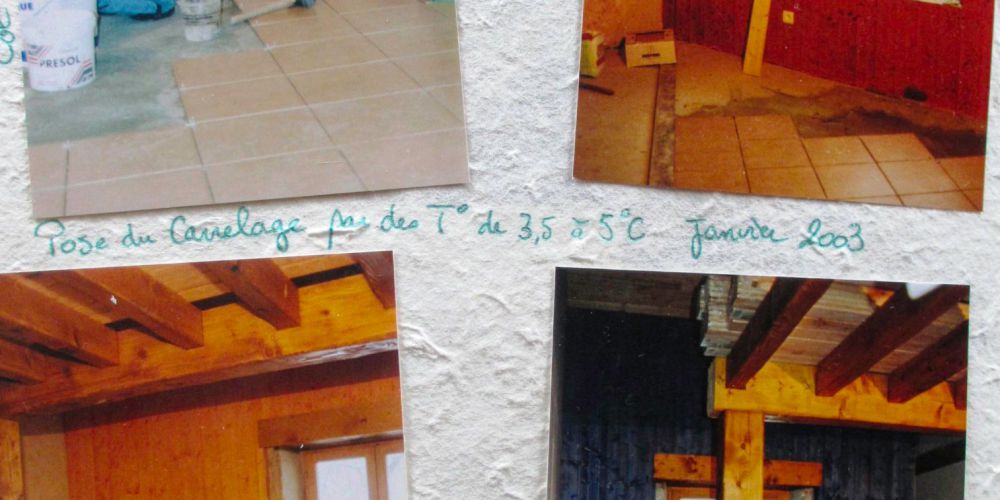 UE
PRESOL
Col
Pose du Carrelage par des T° de 3,5 à 5°C Janvier 2003